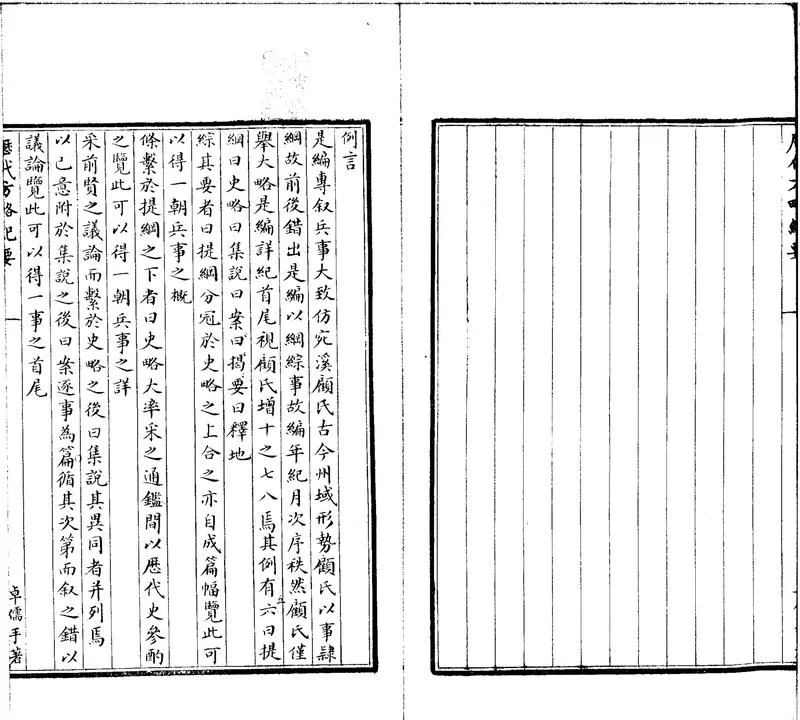 例言
是編專叙兵事大致仿宛溪顧氏古今州域形勢顧氏以事隸
綱故前後錯出是編以綱綜事故編年紀月次序秩然顧氏僅
舉大略是編詳紀首尾視顧氏增十之七八焉其例有六曰提
綱曰史略曰集說曰案曰揭要曰釋地
綜其要者曰提綱分冠於史略之上合之亦自成篇幅覽此可
以得一朝兵事之概
條繫於提綱之下者曰史略大率采之通鑑間以歷代史參酌
之覽此可以得一朝兵事之詳
采前賢之議論而繫於史略之後曰集說其異同者并列焉
以己意附於集說之後曰案逐事為篇循其次第而叙之錯以
議論覽此可以得一事之首尾
歷代方略紀要
一
卓儒手著